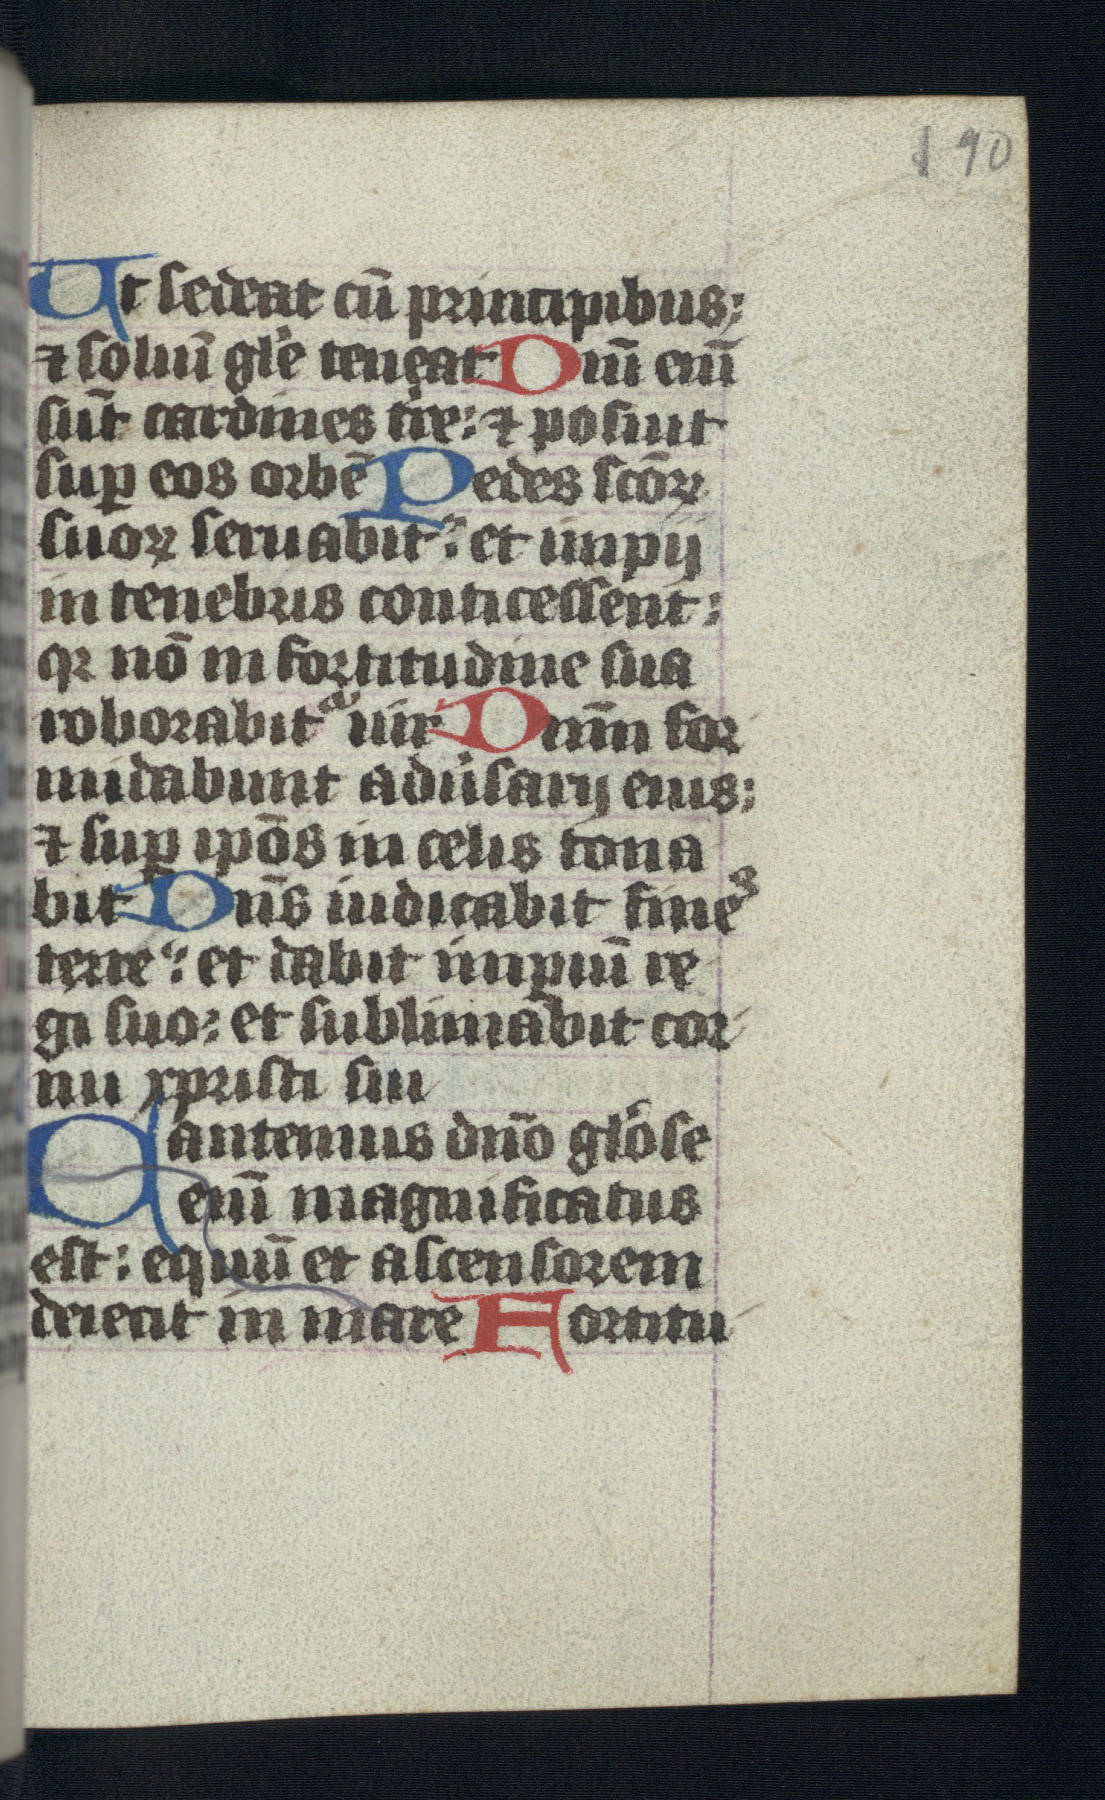 190
Ut sedeat cū principibus;
⁊ soliū gl'e teneat Dn̄i eni̅
sūt cardines t're: ⁊ posuit
sup eos orbē Pedes sc̄oꝝ
suoꝝ seruabit: et impij
in tenebris conticessent:
qꝛ nō in fortitudine sua
roborabitᵃ uir Dn̄m for
midabunt adu'sarij eius:
⁊ sup ip̄os in celis tona
bit Dn̄s iudicabit fineˢ
terre: et dabit impiū re
gi suo: et sublimabit cor
nu xpristi sui
Cantemus dn̄o glo'se
eni̅ magnificatus
est: equū et ascensorem
deiecit in mare Fortitu